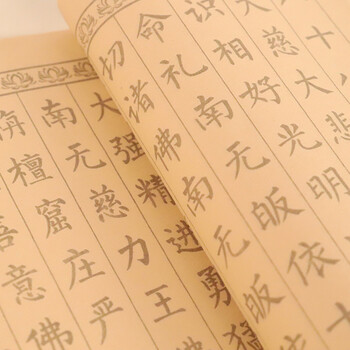 十八
慈大悲
识相好光明
命礼南无皈依十
切诸佛南无皈
大强精进勇猛
南无慈力王
栴檀窟庄严
善意佛